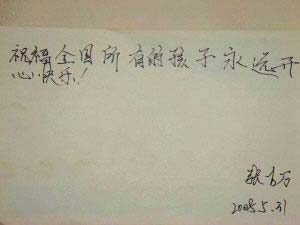 祝福全国所有的孩子永远开
心快乐!
2005.5.31